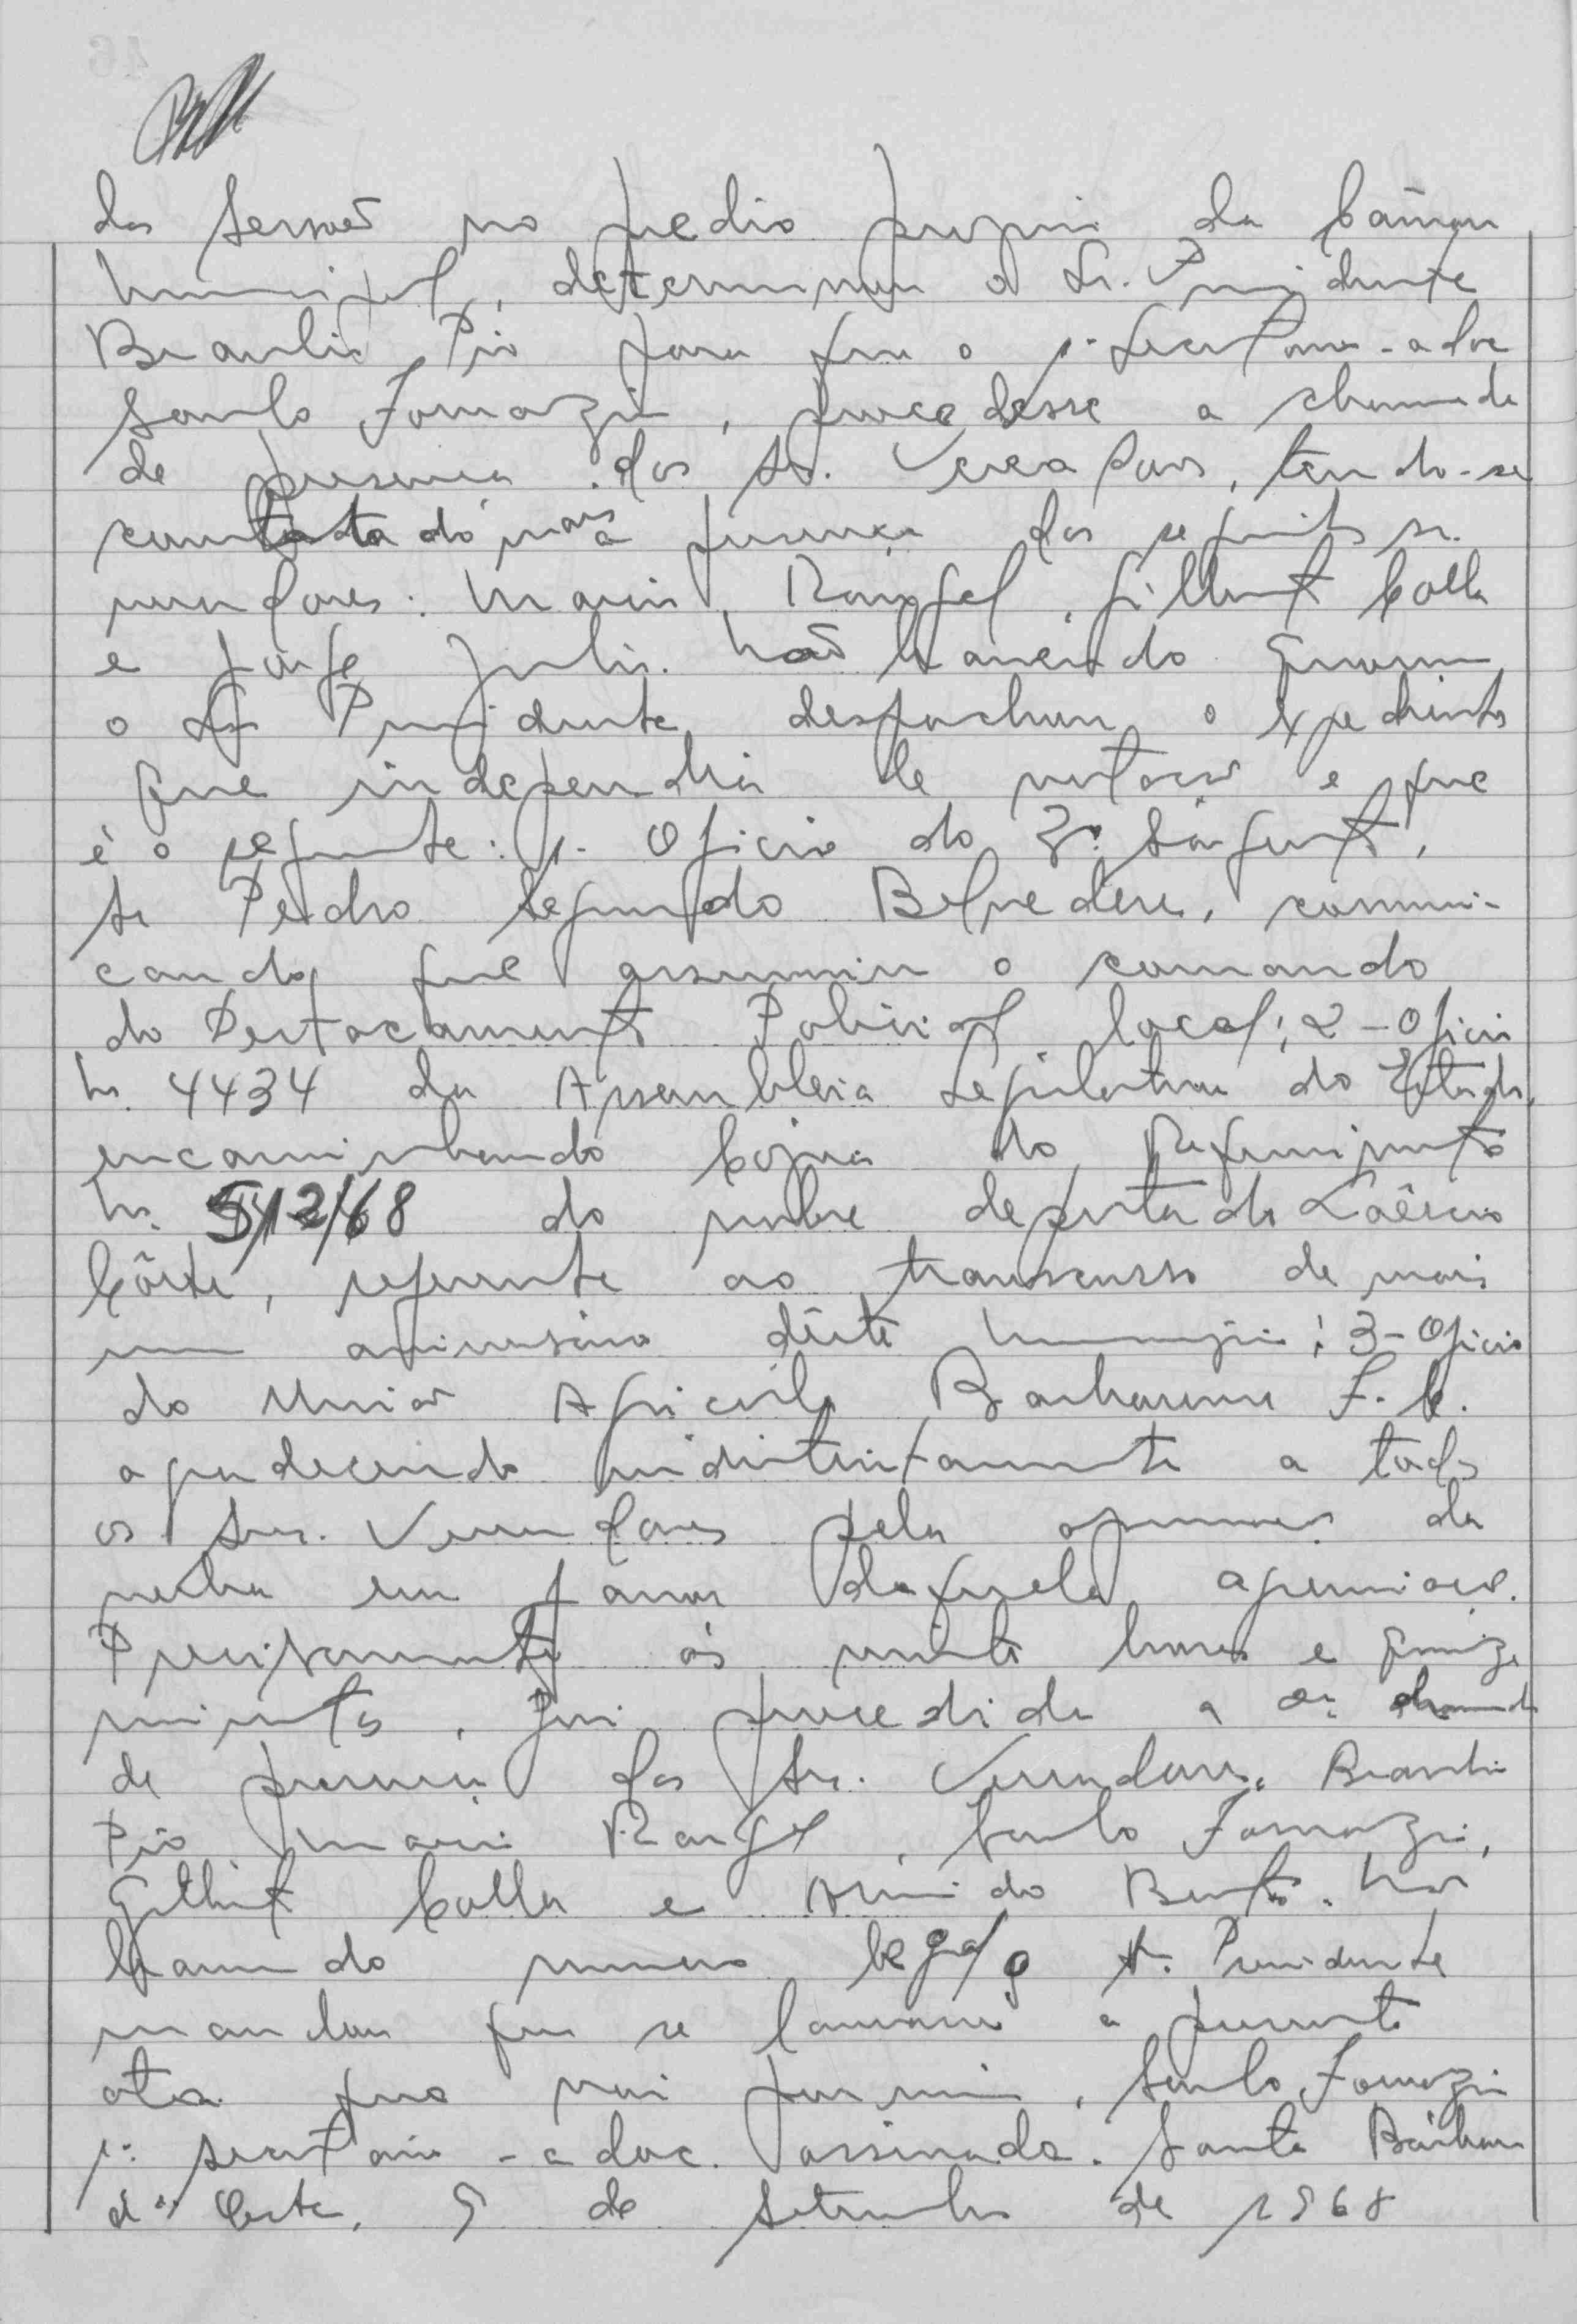 das Sessões no predio proprio da Câmara
Municipal, determinou o Sr. Presidente
Braulio Pio para que o 1º Secretario - adoc
Saulo Fornazin, procedesse a chamada
de presença dos Srs. Vereadores, tendo-se
constatado mais a presença dos seguintes srs.
vereadores: Mario Rangel, Gilbert Colla
e Jorge Julio. Não havendo quorum,
o Sr. Presidente despachou o expediente
que independia de votação e que
é o seguinte: 1- Oficio do 3º Sargento,
Sr Pedro Segundo Belvedere, comuni-
cando que assumiu o comando
do Destacamento Policial local; 2 - Oficio
nº 4434 da Assembleia Legislativa do Estado,
encaminhando Copia do Requerimento
nº 512/68 do nobre deputado Laêrcio
Côrte, referente ao transcurso de mais
um aniversário dêste Municipio; 3 - Oficio
do União Agricola Barbarense F. C.
agradecendo indistintamente a todos
os Srs. Vereadores pela da
verba em daquela agremiação.
Precisamente ás vinte horas e quinze
minutos, foi procedida a 2ª chamada
de presença dos Srs. Vereadores Braulio
Pio, Mario Rangel, Saulo Fornazin,
Gilbert Colla e Bento. Não
havendo numero legal o Sr. Presidente
mandou que se lavrasse a presente
ata que vai por mim, Saulo Fornazin
1º secretario - adoc. assinada. Santa Bárbara
d'Oeste, 9 de Setembro de 1968